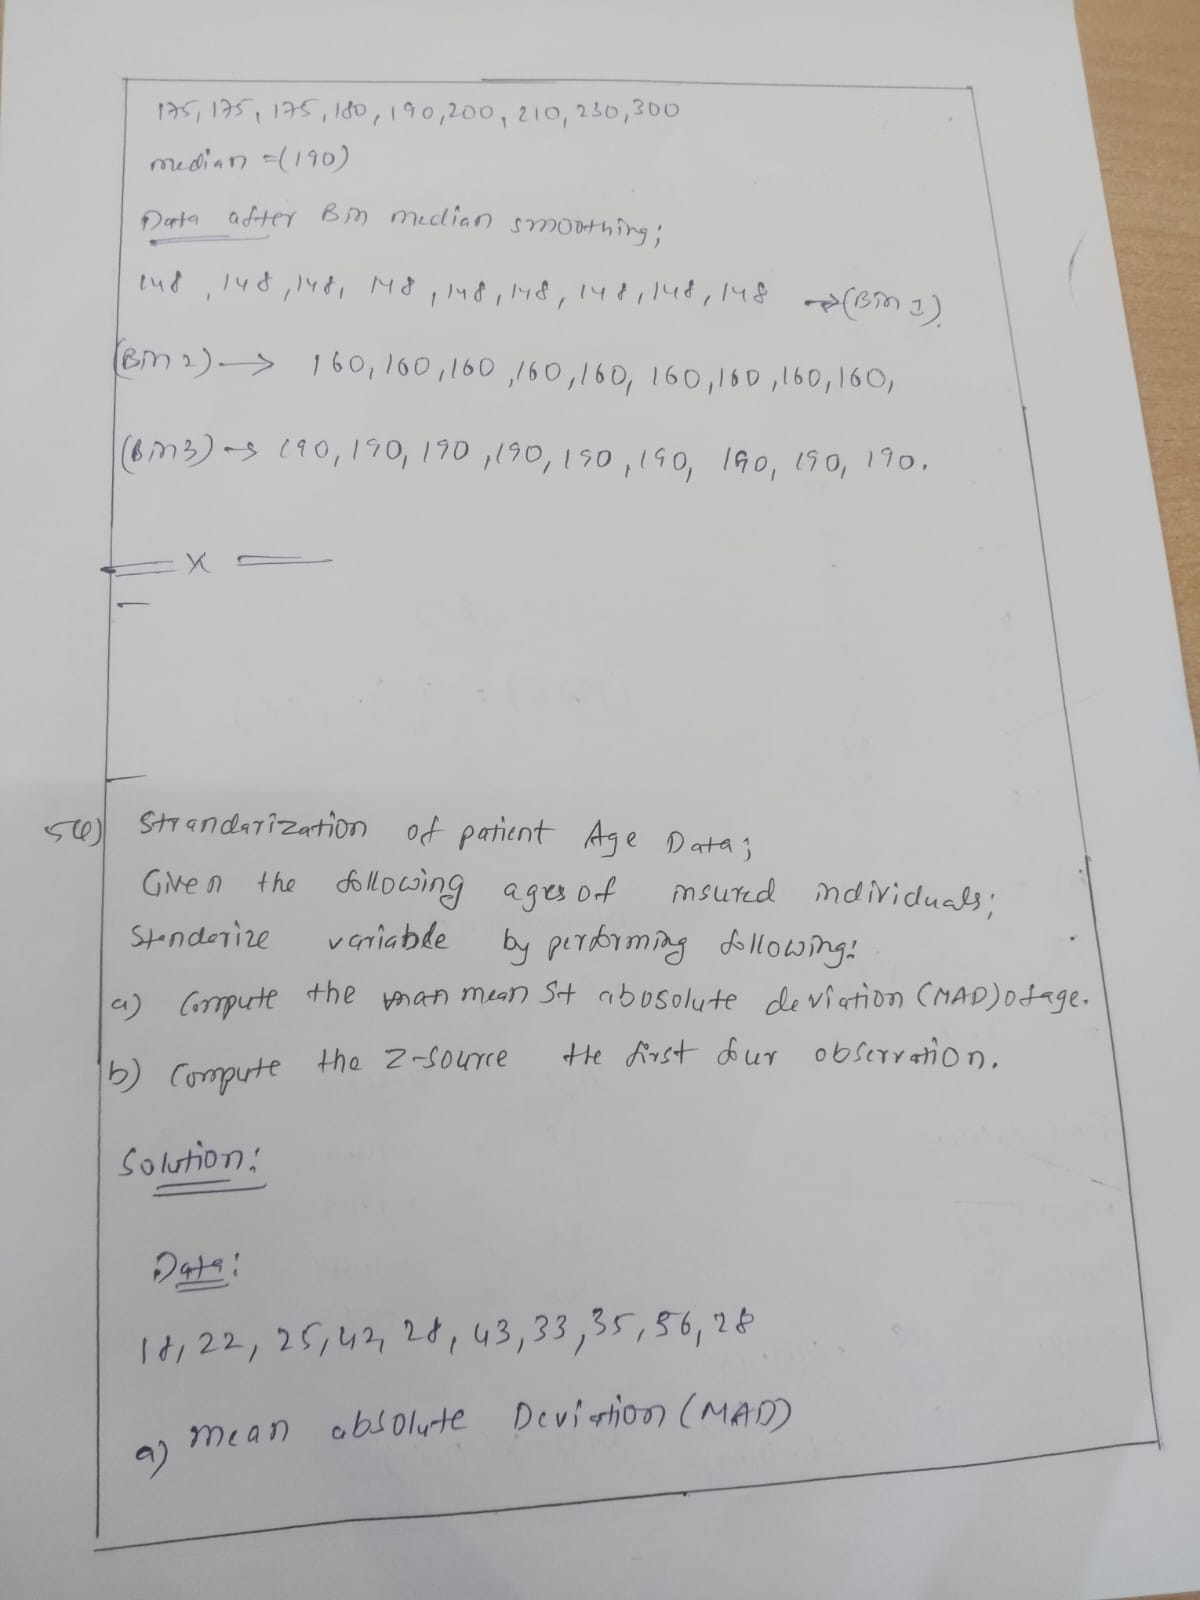 175, 175, 175, 180, 190, 200, 210, 230, 300
median = (190)
Data after Bin median smoothing;
148, 148, 148, 148, 148, 148, 148, 148, 148 → (Bin 1).
(Bin 2) → 160, 160, 160, 160, 160, 160, 160, 160, 160,
(Bin 3) → 190, 190, 190, 190, 190, 190, 190, 190, 190.
= X =
Strandarization of patient Age Data;
Given the following ages of insured individuals;
Standerize variable by performing following:
a) Compute the mean St abosolute deviation (MAD) of age.
b) Compute the Z-source the first four observation.
Solution:
Data:
18, 22, 25, 42, 28, 43, 33, 35, 56, 28
a) mean absolute Deviation (MAD)